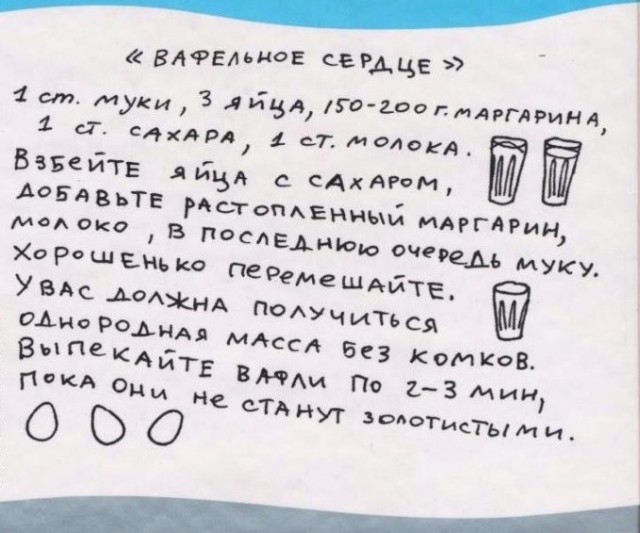 « ВАФЕЛЬНОЕ СЕРДЦЕ »
1 ст. муки, 3 яйца, 150-200 г. маргарина,
1 ст. сахара, 1 ст. молока.
Взбейте яйца с сахаром,
добавьте растопленный маргарин,
молоко, в последнюю очередь муку.
Хорошенько перемешайте.
У вас должна получиться
однородная масса без комков.
Выпекайте вафли по 2-3 мин,
пока они не станут золотистыми.